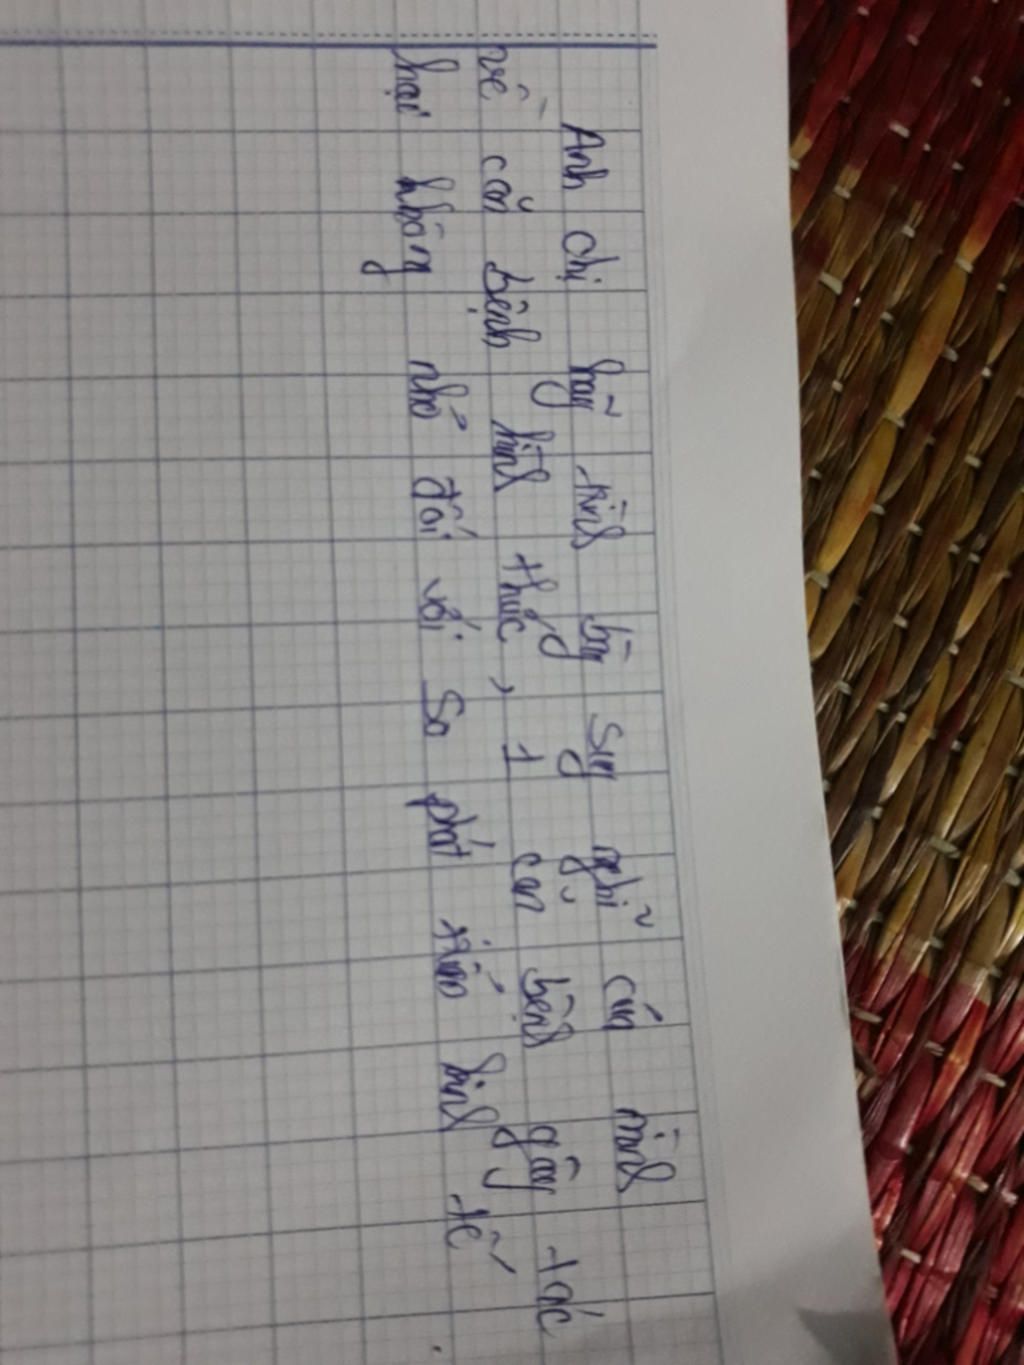 Anh chị hãy trình bày suy nghĩ của mình
về căn bệnh hình thức, 1 căn bệnh gây tác
hại không nhỏ đối với sự phát triển kinh tế.